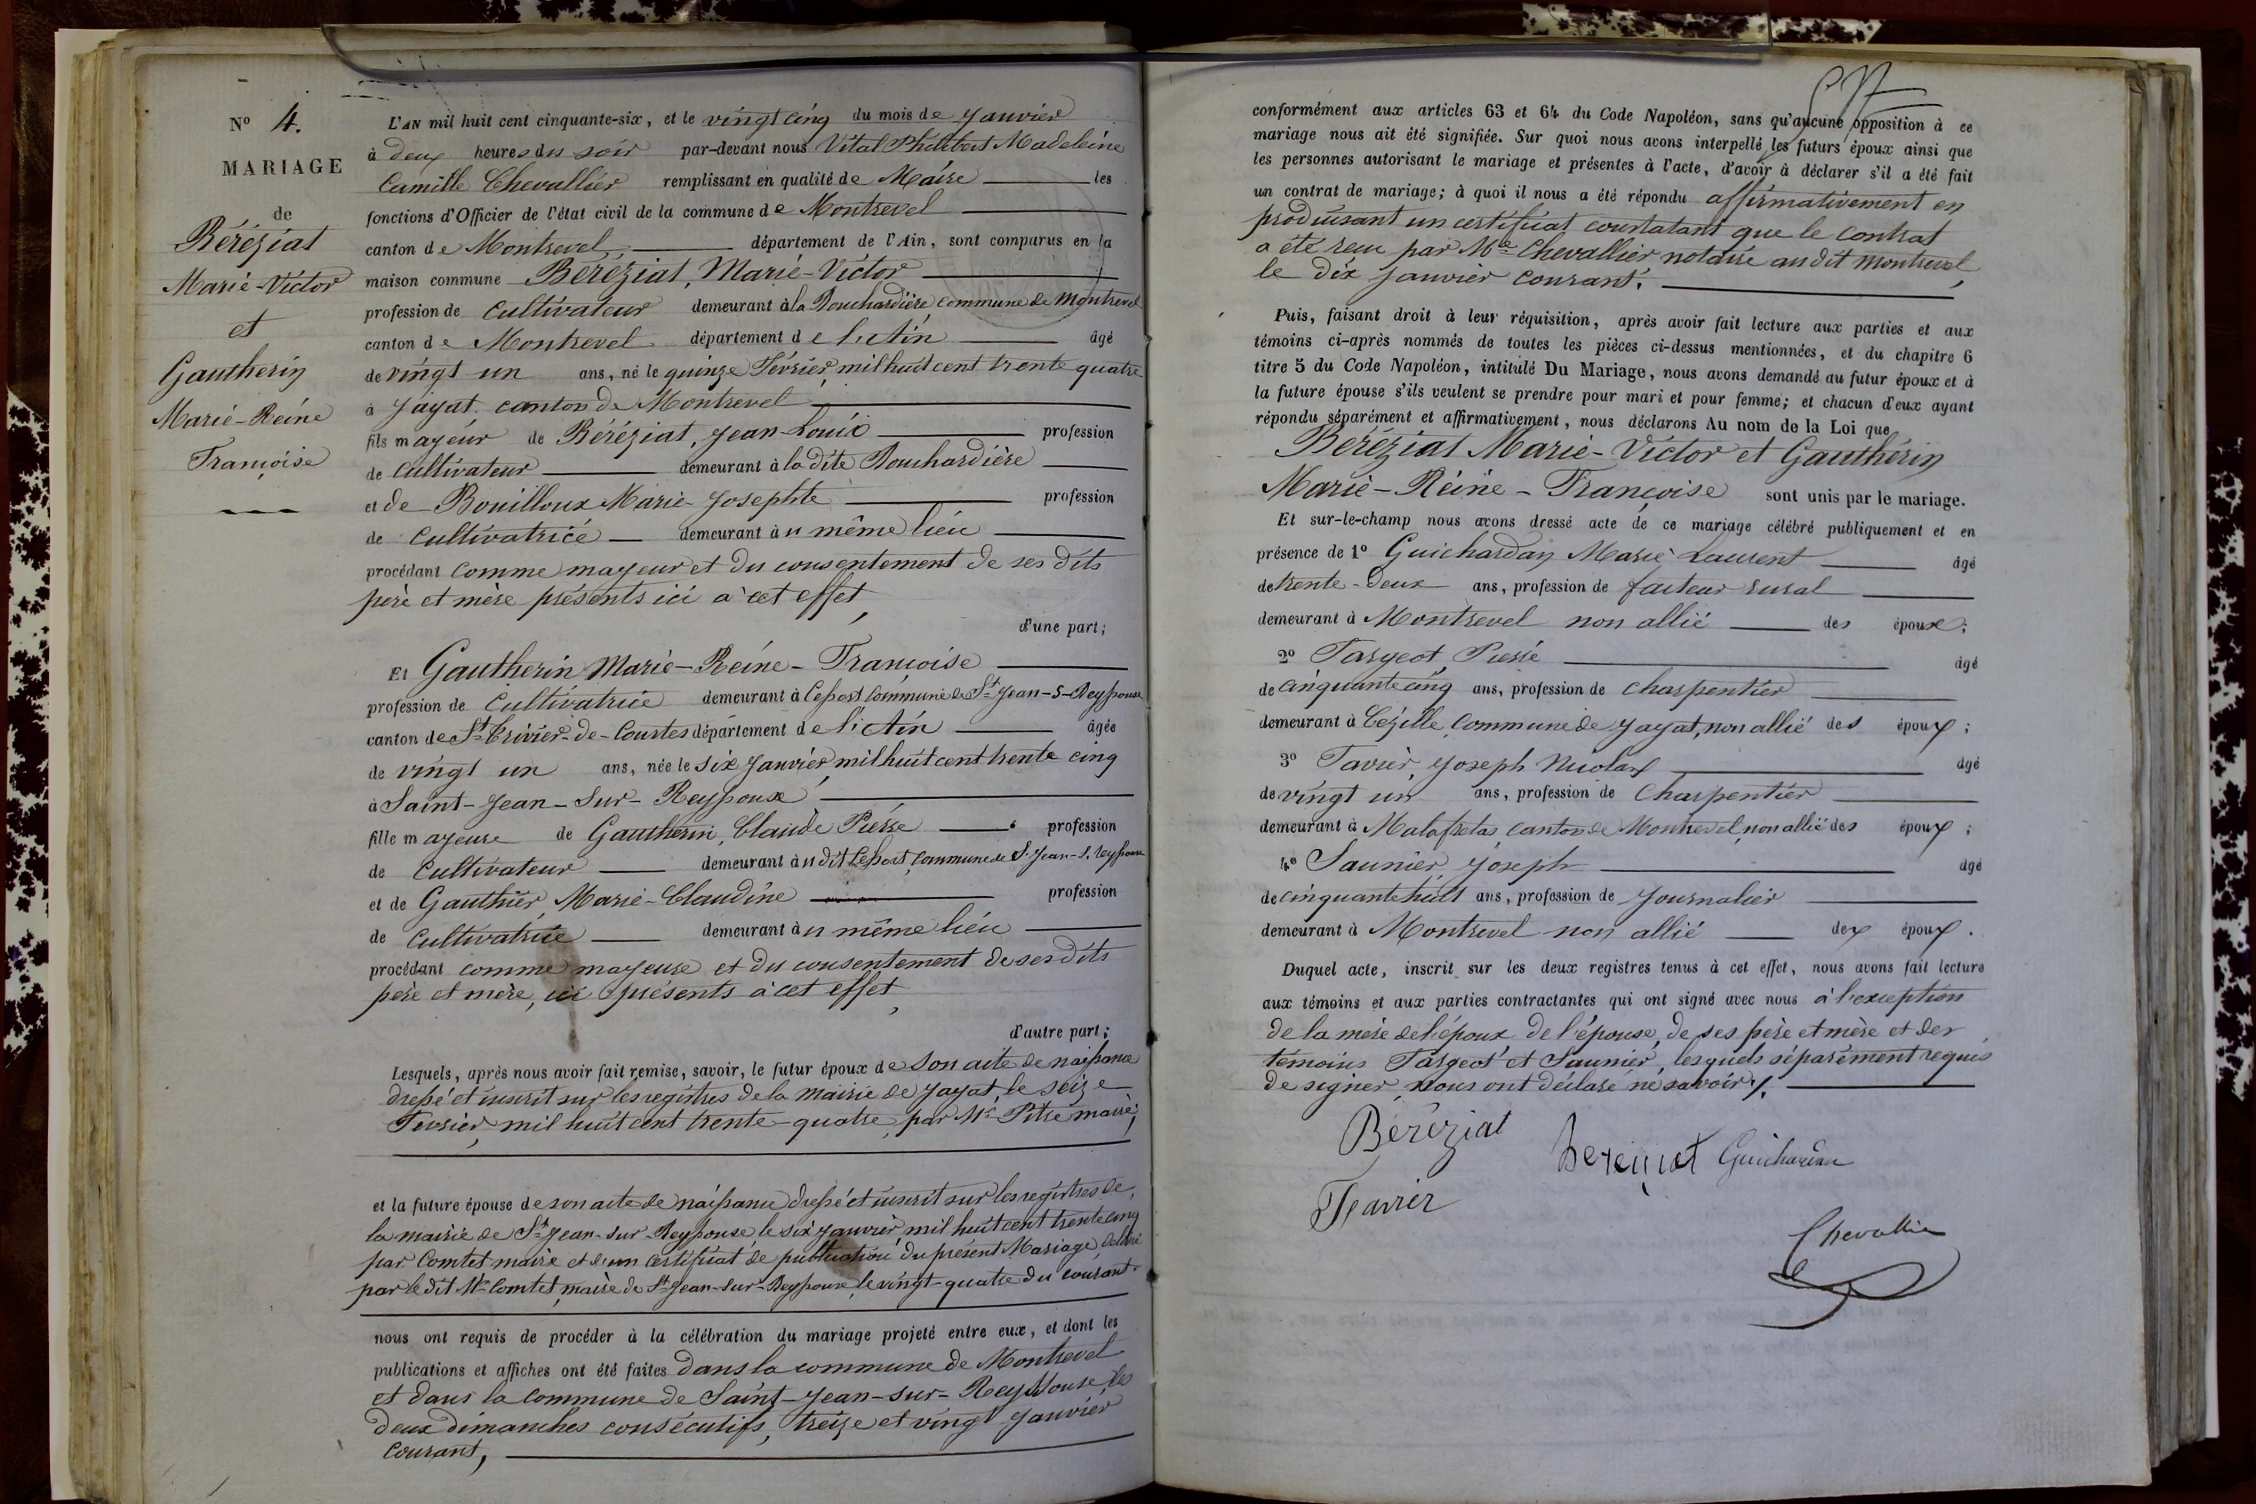 Nº 4.
MARIAGE
de
Béréziat
Marie-Victor
et
Gautherin
Marie-Reine
Françoise
L'AN mil huit cent cinquante-six, et le vingt cinq du mois de Janvier
à deux heures du soir par-devant nous Vital Philibert Madeleine
Camille Chevallier remplissant en qualité de Maire les
fonctions d'Officier de l'état civil de la commune de Montrevel
canton de Montrevel département de l'Ain, sont comparus en la
maison commune Béréziat, Marie-Victor
profession de Cultivateur demeurant à la Bouchardière, commune de Montrevel
canton de Montrevel département de l'Ain âgé
de vingt un ans, né le quinze Février, mil huit cent trente quatre
à Jayat canton de Montrevel
fils mayeur de Béréziat, Jean-Louis profession
de cultivateur demeurant à la dite Bouchardière
et de Bouilloux Marie-Josephte profession
de Cultivatrice demeurant au même lieu
procédant comme mayeur et du consentement de ses dits
père et mère présents ici à cet effet,
d'une part;
Et Gautherin Marie-Reine-Françoise
profession de Cultivatrice demeurant à Céport commune de St Jean-S-Reyssouze
canton de St Trivier-de-Courtes département de l'Ain âgée
de vingt un ans, née le six Janvier, mil huit cent trente cinq
à Saint-Jean-Sur-Reyssouze
fille mayeure de Gautherin, Claude Pierre profession
de Cultivateur demeurant au dit Céport, commune de St Jean-S. Reyssouze
et de Gauthier, Marie-Claudine profession
de Cultivatrice demeurant au même lieu
procédant comme mayeure et du consentement de ses dits
père et mère, ici présents à cet effet,
d'autre part;
Lesquels, après nous avoir fait remise, savoir, le futur époux de son acte de naissance
dressé et inscrit sur les registres de la mairie de Jayat, le seize
Février, mil huit cent trente-quatre, par Mr Pitre maire,
et la future épouse de son acte de naissance dressé et inscrit sur les registres de
la mairie de St Jean-sur-Reyssouze, le six Janvier, mil huit cent trente cinq
par Comtet maire et d'un certificat de publication du présent Mariage, délivré
par le dit Mr Comtet, maire de St Jean-sur-Reyssouze, le vingt-quatre du courant.
nous ont requis de procéder à la célébration du mariage projeté entre eux, et dont les
publications et affiches ont été faites dans la commune de Montrevel
et dans la commune de Saint-Jean-sur-Reyssouze, les
deux dimanches consécutifs, treize et vingt Janvier
courant,
conformément aux articles 63 et 64 du Code Napoléon, sans qu'aucune opposition à ce
mariage nous ait été signifiée. Sur quoi nous avons interpellé les futurs époux ainsi que
les personnes autorisant le mariage et présentes à l'acte, d'avoir à déclarer s'il a été fait
un contrat de mariage; à quoi il nous a été répondu affirmativement en
produisant un certificat constatant que le contrat
a été reçu par Me Chevallier notaire au dit Montrevel,
le dix Janvier courant.
Puis, faisant droit à leur réquisition, après avoir fait lecture aux parties et aux
témoins ci-après nommés de toutes les pièces ci-dessus mentionnées, et du chapitre 6
titre 5 du Code Napoléon, intitulé Du Mariage, nous avons demandé au futur époux et à
la future épouse s'ils veulent se prendre pour mari et pour femme; et chacun d'eux ayant
répondu séparément et affirmativement, nous déclarons Au nom de la Loi que
Béréziat Marie-Victor et Gautherin
Marie-Reine-Françoise sont unis par le mariage.
Et sur-le-champ nous avons dressé acte de ce mariage célébré publiquement et en
présence de 1º Guichardan Marie Laurent âgé
de trente-deux ans, profession de facteur rural
demeurant à Montrevel non allié des époux;
2º Targeot, Pierre âgé
de cinquante cinq ans, profession de charpentier
demeurant à Cézille, commune de Jayat, non allié des époux;
3º Favier, Joseph Nicolas âgé
de vingt un ans, profession de Charpentier
demeurant à Malafretaz, canton de Montrevel, non allié des époux;
4º Saunier, Joseph âgé
de cinquante huit ans, profession de Journalier
demeurant à Montrevel non allié des époux.
Duquel acte, inscrit sur les deux registres tenus à cet effet, nous avons fait lecture
aux témoins et aux parties contractantes qui ont signé avec nous à l'exception
de la mère de l'époux, de l'épouse, de ses père et mère et des
témoins Targeot et Saunier, lesquels séparément requis
de signer, nous ont déclaré ne savoir.
Béréziat
Bereziat
Guichardan
Favier
Chevallier